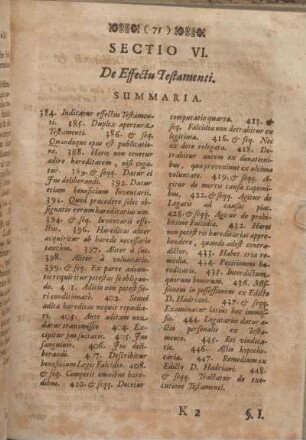 ( 71 )
SECTIO VI.
De Effectu Testamenti.
SUMMARIA.
384. Indicatur effectus Testamen-
ti. 385. Duplex apertura
Testamenti. 386. & seq.
Quandoque opus est publicatio-
ne. 388. Heres non tenetur
adire hereditatem nisi coga-
tur. 389. & seqq. Datur ei
Jus deliberandi. 392. Datur
etiam beneficium Inventarii.
393. Quod procedere solet ob-
signatio rerum hereditariarum.
394. & seq. Inventarii effe-
ctus. 396. Hereditas aliter
acquiritur ab herede necessario
397. Aliter à suo.
398. Aliter à voluntario.
399. & seq. Ex parte adeun-
tis requiritur potestas se obligan-
di. 401. Aditio non potest fie-
ri conditionaté. 402. Semel
adita hereditas nequit repudia-
ri. 403. Ante aditam non
datur transmissio 404. Ex-
cipitur jus suitatis. 405. Jus
sanguinis. 406. Jus deli-
berandi. 407. Describitur
beneficium Legis Falcidiæ. 408.
& seq. Competit omnibus he-
redibus. 410. & seqq. Docetur
computatio quartæ. 413.
seq. Falcidia non detrahitur ex
legitima. 416. & seq. Nec
ex dote relegata. 418. De-
trahitur autem ex donationi-
bus, quæ proveniunt ex ultima
voluntate. 419. & seqq. A-
gitur de mortis causa capioni-
bus. 422. & seqq. Agitur de Legatis
ad causas pias.
428. & seqq. Agitur de prohi-
bitione Falcidiæ. 432. Heres
non potest res hereditarias appre-
hendere, quando adest contra-
dictor. 433. Habet tria re-
media. 434. Petitionem he-
reditatis. 435. Interdictum
quorum bonorum. 436. Mis-
sionem in possessionem ex Edicto
D. Hadriani. 437. & seqq.
Examinatur latiùs hæc immissio.
444. Legatario datur a-
ctio personalis ex Testa-
mento. 445. Rei vindica-
tio. 446. Actio hypothe-
caria. 447. Remedium ex
Edicto D. Hadriani. 448. &
seqq. Tractatur de exe-
cutione Testamenti.
K 2
§. I.